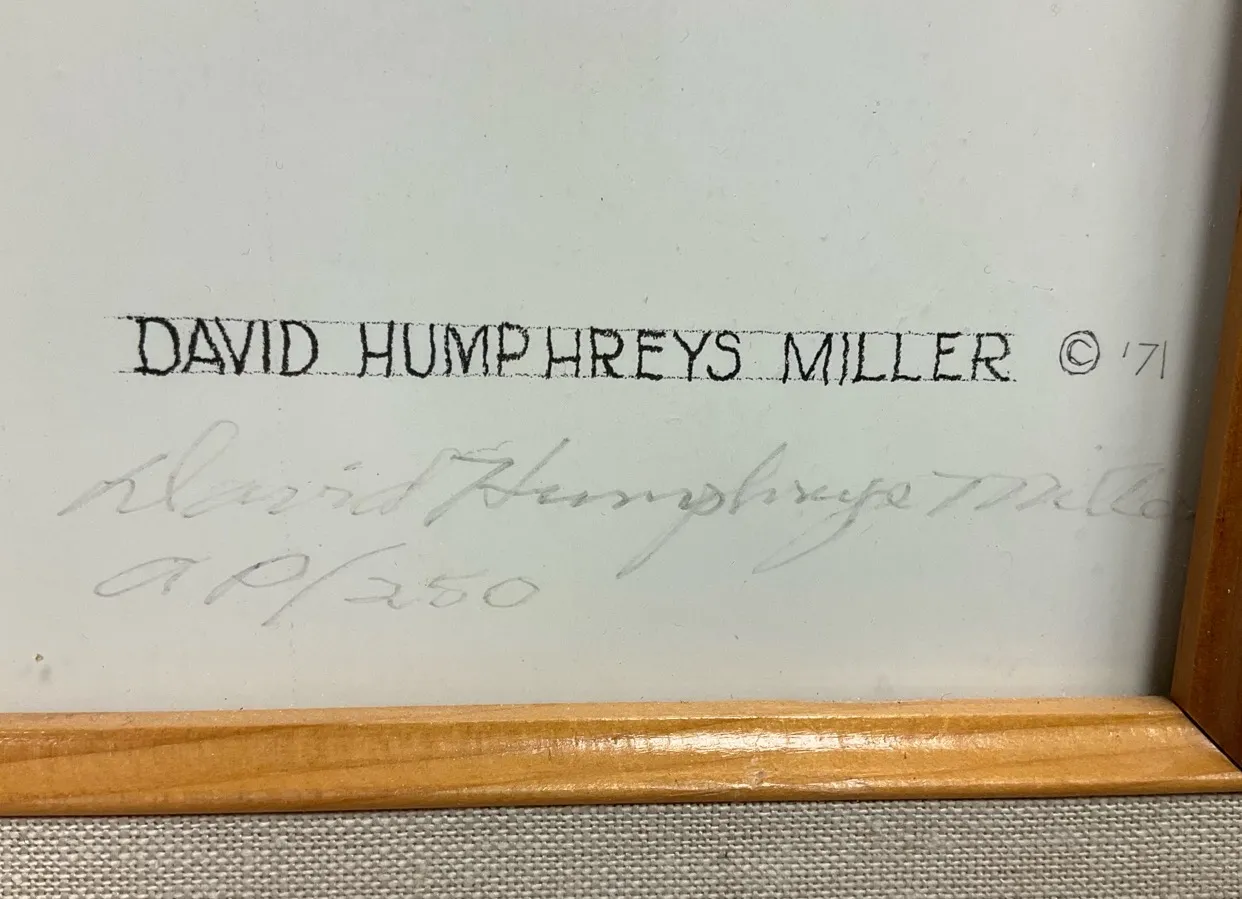 DAVID HUMPHREYS MILLER © '71
David Humphreys Miller
AP/250